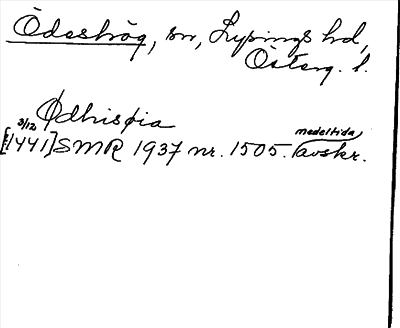 Ödeshög, sn, Lysings hd,
Österg. l.
Ødhisøia
3/12
[1441] SMR 1937 nr. 1505. medeltida avskr.